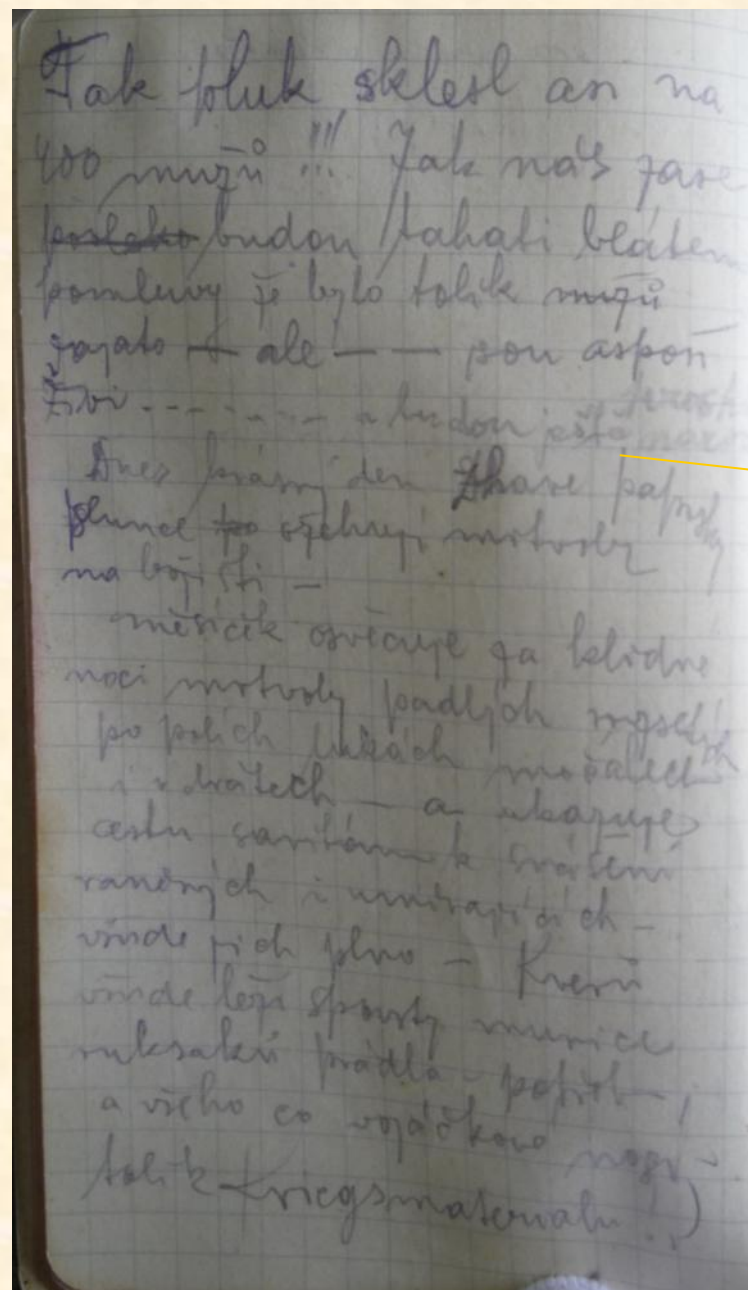 Tak pluk sklesl asi na
400 mužů !!! Jak nás zase
budou tahati blátem
pomluvy že bylo tolik mužů
zajato — ale — — sou aspoň
živi - - - - - - - - a budou ještě
Dnes krásný den Žhavé paprsky
slunce ozehují mrtvoly
na bojišti —
měsíček osvěcuje za klidné
noci mrtvoly padlých
po polích lukách močálech
i v drátech — a ukazuje
cestu sanitám k snášení
raněných i umírajících —
všude jich plno — Kverů
všude leží spousty munice
ruksaků prádla —
a všeho co vojáčkové nosí —
tolik Kriegsmaterialu !.)